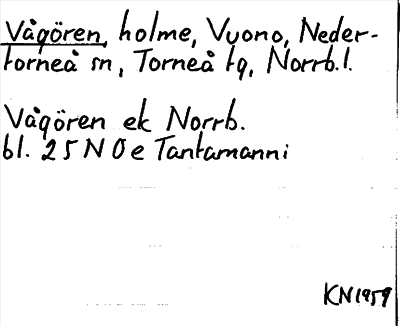 Vågören, holme, Vuono, Neder-
torneå sn, Torneå tg, Norrb.l.
Vågören ek Norrb.
bl. 25 N 0 e Tantamanni
KN 1959